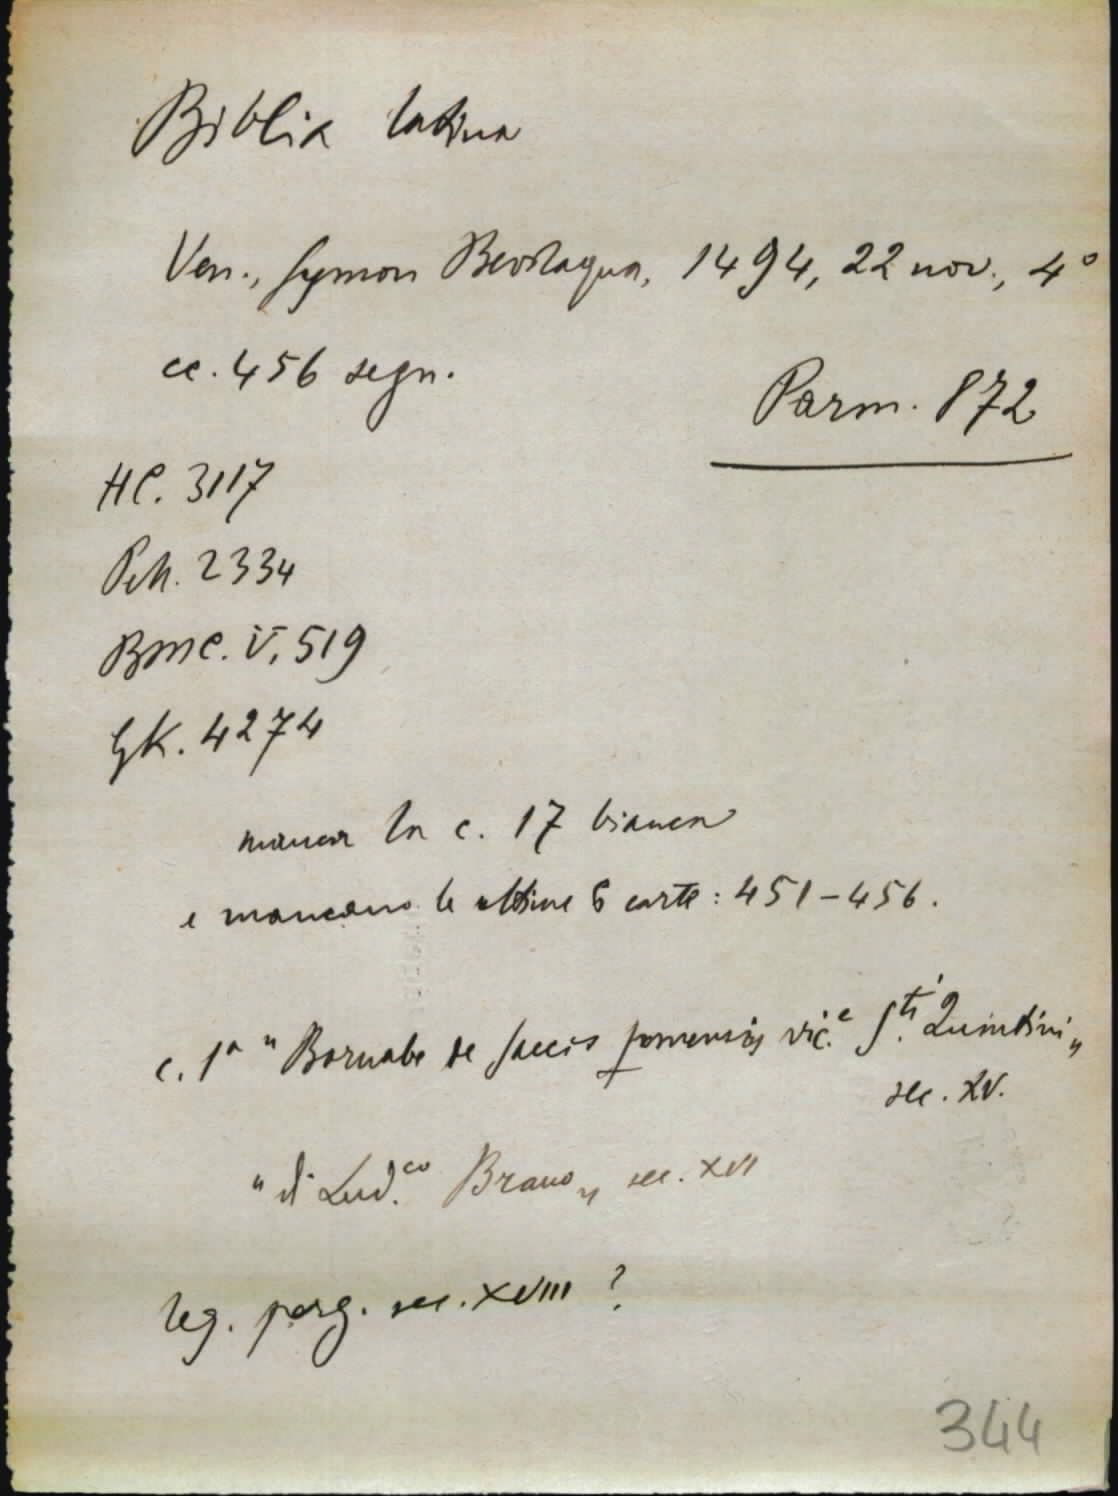 Biblia latina
Ven., Symon Bevilaqua, 1494, 22 nov., 4°
cc. 456 segn.
Parm. 872
HC. 3117
Pell. 2334
BMC. V, 519
GK. 4274
manca la c. 17 bianca
e mancano le ultime 6 carte: 451-456.
c. 1ª "Barnabe de Saccis vic.e S.ti Quintini"
sec. XV.
"di Lud.co Bravo" sec. XVI
leg. perg. sec. XVIII ?
344